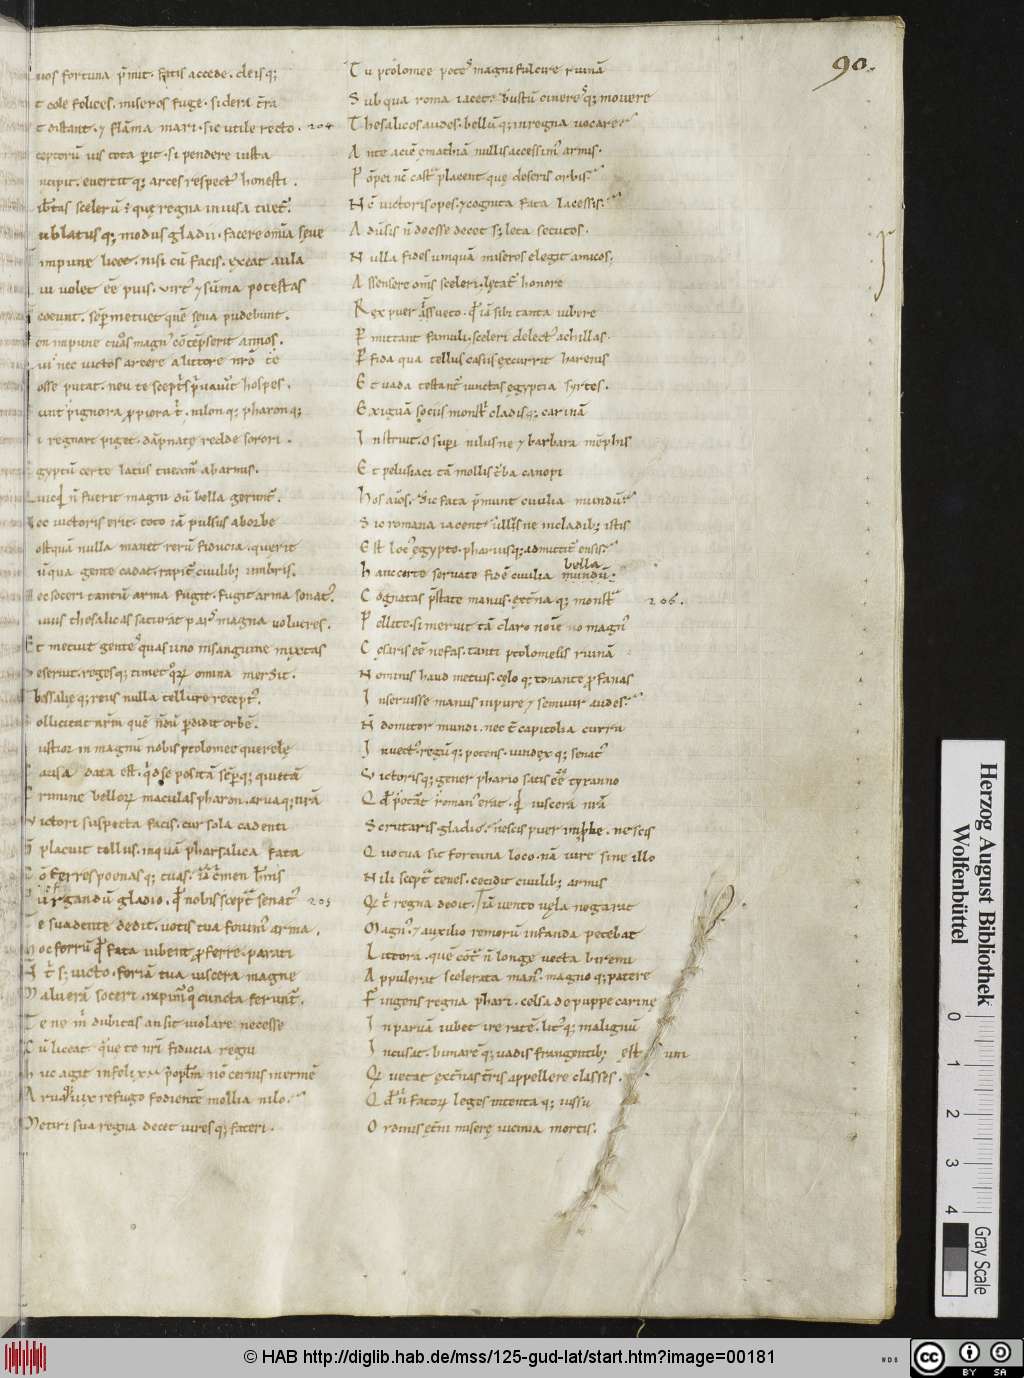 90.
uos fortuna p̄mit. fatis accede. deisq;
t cole felices. miseros fuge. sidera t̄ra
t distant. ⁊ flāma mari. sic utile recto. 204
ceptorū uis tota ꝑit. si pendere iusta
ncipit. euertit q; arces respect᷒ honesti.
ib̄tas scelerū ē que regna inuisa tuet᷒.
ublatusq; modus gladii. facere om̄ia seue
impune licet. nisi cū facis. exeat aula
ui uolet eē pius. uirt᷒ ⁊ sūma potestas
coeunt. sēp metuet quē seua pudebunt.
on impune tuos magn᷒ cōtēpserit annos.
ui nec uictos arcere a littore nr̄o
osse putat. neu te sceptris p̄uauerit hospes.
unt pignora ꝓpiora t̄. nilon q; pharon q;
i regnare piget. dāpnate redde sorori.
gyptū certe latiis tueam᷒ ab armis.
uicqd n̄ fuerit magni dū bella gerunt᷒.
ec uictoris erit. toto iā pulsus ab orbe
ostquā nulla manet rerū fiducia. querit
ū qua gente cadat. rapit᷒ ciuilib; umbris.
ec soceri tantū arma fugit. fugit ora senat᷒.
uius thesalicas saturat pars magna uolucres.
Et metuit gentes quas uno in sanguine mixtas
eseruit. regesq; timet quor̄ omnia mersit.
hessalieq; reus nulla tellure recept᷒.
ollicitat nr̄m quē nōdū ꝑdidit orbē.
ustior in magnū nobis ptolomee querele
ausa data est. qd se positā sēpq; quietā
rimine bellor̄ maculas pharon. aruaq; nr̄a
uictori suspecta facis. cur sola cadenti
placuit tellus. in quā pharsalica fata
ō ferres poenasq; tuas. iā crimen habemus
urgandū gladio. qd nobis sceptra senat᷒ 205
e suadente dedit. uotis tua fouim᷒ arma.
oc ferrū qd fata iubent ꝓferre. paraui
N t̄ s; uicto. feriā tua uiscera magne
alueram soceri. rapim᷒ quo cuncta ferunt᷒.
Te ne m̄ dubitas an sit uiolare necesse
ū liceat. que te nr̄i fiducia regni
huc agit infelix. populum nō cernis inermē
A ruaq; uix refugo fodientē mollia nilo.
Metiri sua regna decet uiresq; fateri.
T u ptolomee potes magni fulcire ruinā
S ub qua roma iacet. bustū cineresq; mouere
T hesalicos audes. bellūq; in regna uocare
A nte aciē emathiā nullis accessim᷒ armis.
P ōpei nē castra placent que deseris orbis
N c̄ uictoris opes. ⁊ cognita fata lacessis.
A duersis n̄ deesse decet s; leta secutos.
N ulla fides umquā miseros elegit amicos.
A ssensere om̄s sceleri. letat᷒ honore
R ex puer assueto. qd iā sibi tanta iubere
P mittant famuli. sceleri delect᷒ achillas.
P fida qua tellus casiis excurrit harenis
E t uada testant᷒ iunctas egyptia syrtes.
E xiguā sociis monstri cladisq; carinā
I nstruit. o superi nilus ne ⁊ barbara mēphis
E t pelusiaci tā mollis turba canopi
h os aīos. sic fata p̄munt ciuilia mundū
S ic romana iacent. ullus ne in cladib; istis
E st loc᷒ egypto. pharius q; admittit᷒ ensis
h anc certe seruate fidē ciuilia mundū:
bella
C ognatas p̄state manus. ext̄na q; monstra 206.
P ellite. si meruit tā claro noīe magn᷒
C esaris eē nefas. tanti ptolomee ruinā
N ominis haud metuis. celo q; tonante ꝓfanas
I nseruisse manus inpure ⁊ semiuir audes
N̄ domitor mundi. nec t̄ capitolia curru
I nuect᷒. regūq; potens. uindex q; senat᷒
V ictorisq; gener phario satis eē tyranno
Q d̄ poterat roman᷒ erat. qd uiscera nr̄a
S crutaris gladio. nescis puer improbe. nescis
Q uo tua sit fortuna loco. nā iure sine illo
N ili sceptra tenes. cecidit ciuilib; armis
Q i t̄ regna dedit. iā uento uela negarat
M agn᷒. ⁊ auxilio remorū infanda petebat
L ittora. quē cont᷒ n̄ longe uecta biremi
A ppulerat scelerata man᷒. magno q; patere
F ingens regna phari. celsa de puppe carine
I n paruā iubet ire ratē. lit᷒q; malignū
I ncusat. bimarēq; uadis frangentib; est um
Q i uetat ext̄nas t̄ris appellere classes.
Q d n̄ fator̄ leges intenta q; iussu
O rdinis et̄ni misere uicinia mortis.
Herzog August Bibliothek
Wolfenbüttel
0 1 2 3 4
Gray Scale
© HAB http://diglib.hab.de/mss/125-gud-lat/start.htm?image=00181
cc BY SA